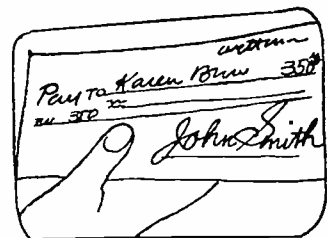 Pay To Karen 350
350 xx
John Smith